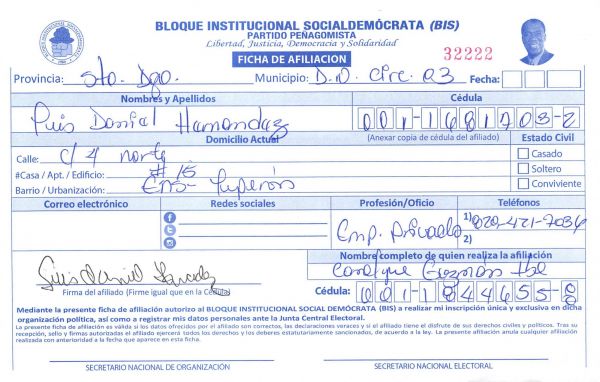 BLOQUE INSTITUCIONAL SOCIALDEMÓCRATA (BIS)
PARTIDO PEÑAGOMISTA
Libertad, Justicia, Democracia y Solidaridad
FICHA DE AFILIACION
32222
Provincia: Sto. Dgo. Municipio: D.N. Circ. 03 Fecha:
Nombres y Apellidos
Cédula
Luis Daniel Hernandez
001-1681703-2
Domicilio Actual
(Anexar copia de cédula del afiliado)
Estado Civil
Calle: c/ 4 norte
Casado
#Casa / Apt. / Edificio: # 15
Soltero
Barrio / Urbanización: Ens. Luperón
Conviviente
Correo electrónico
Redes Sociales
Profesión/Oficio
Teléfonos
Emp. Privado
1) 829-421-7034
2)
Nombre completo de quien realiza la afiliación
Guzmán
Firma del afiliado (Firme igual que en la Cédula)
Cédula: 001-1844655-8
Mediante la presente ficha de afiliación autorizo al BLOQUE INSTITUCIONAL SOCIAL DEMÓCRATA (BIS) a realizar mi inscripción única y exclusiva en dicha
organización política, así como a registrar mis datos personales ante la Junta Central Electoral.
La presente ficha de afiliación es válida si los datos ofrecidos por el afiliado son correctos, las declaraciones veraces y si el afiliado tiene el disfrute de sus derechos civiles y políticos. Tras su
recepción, sello y firmas autorizadas el afiliado ejercerá todos los derechos y los deberes estatutariamente sancionados, de acuerdo a la ley. La presente afiliación anula cualquier afiliación
realizada con anterioridad a la fecha que aparece en esta ficha.
SECRETARIO NACIONAL DE ORGANIZACIÓN
SECRETARIO NACIONAL ELECTORAL